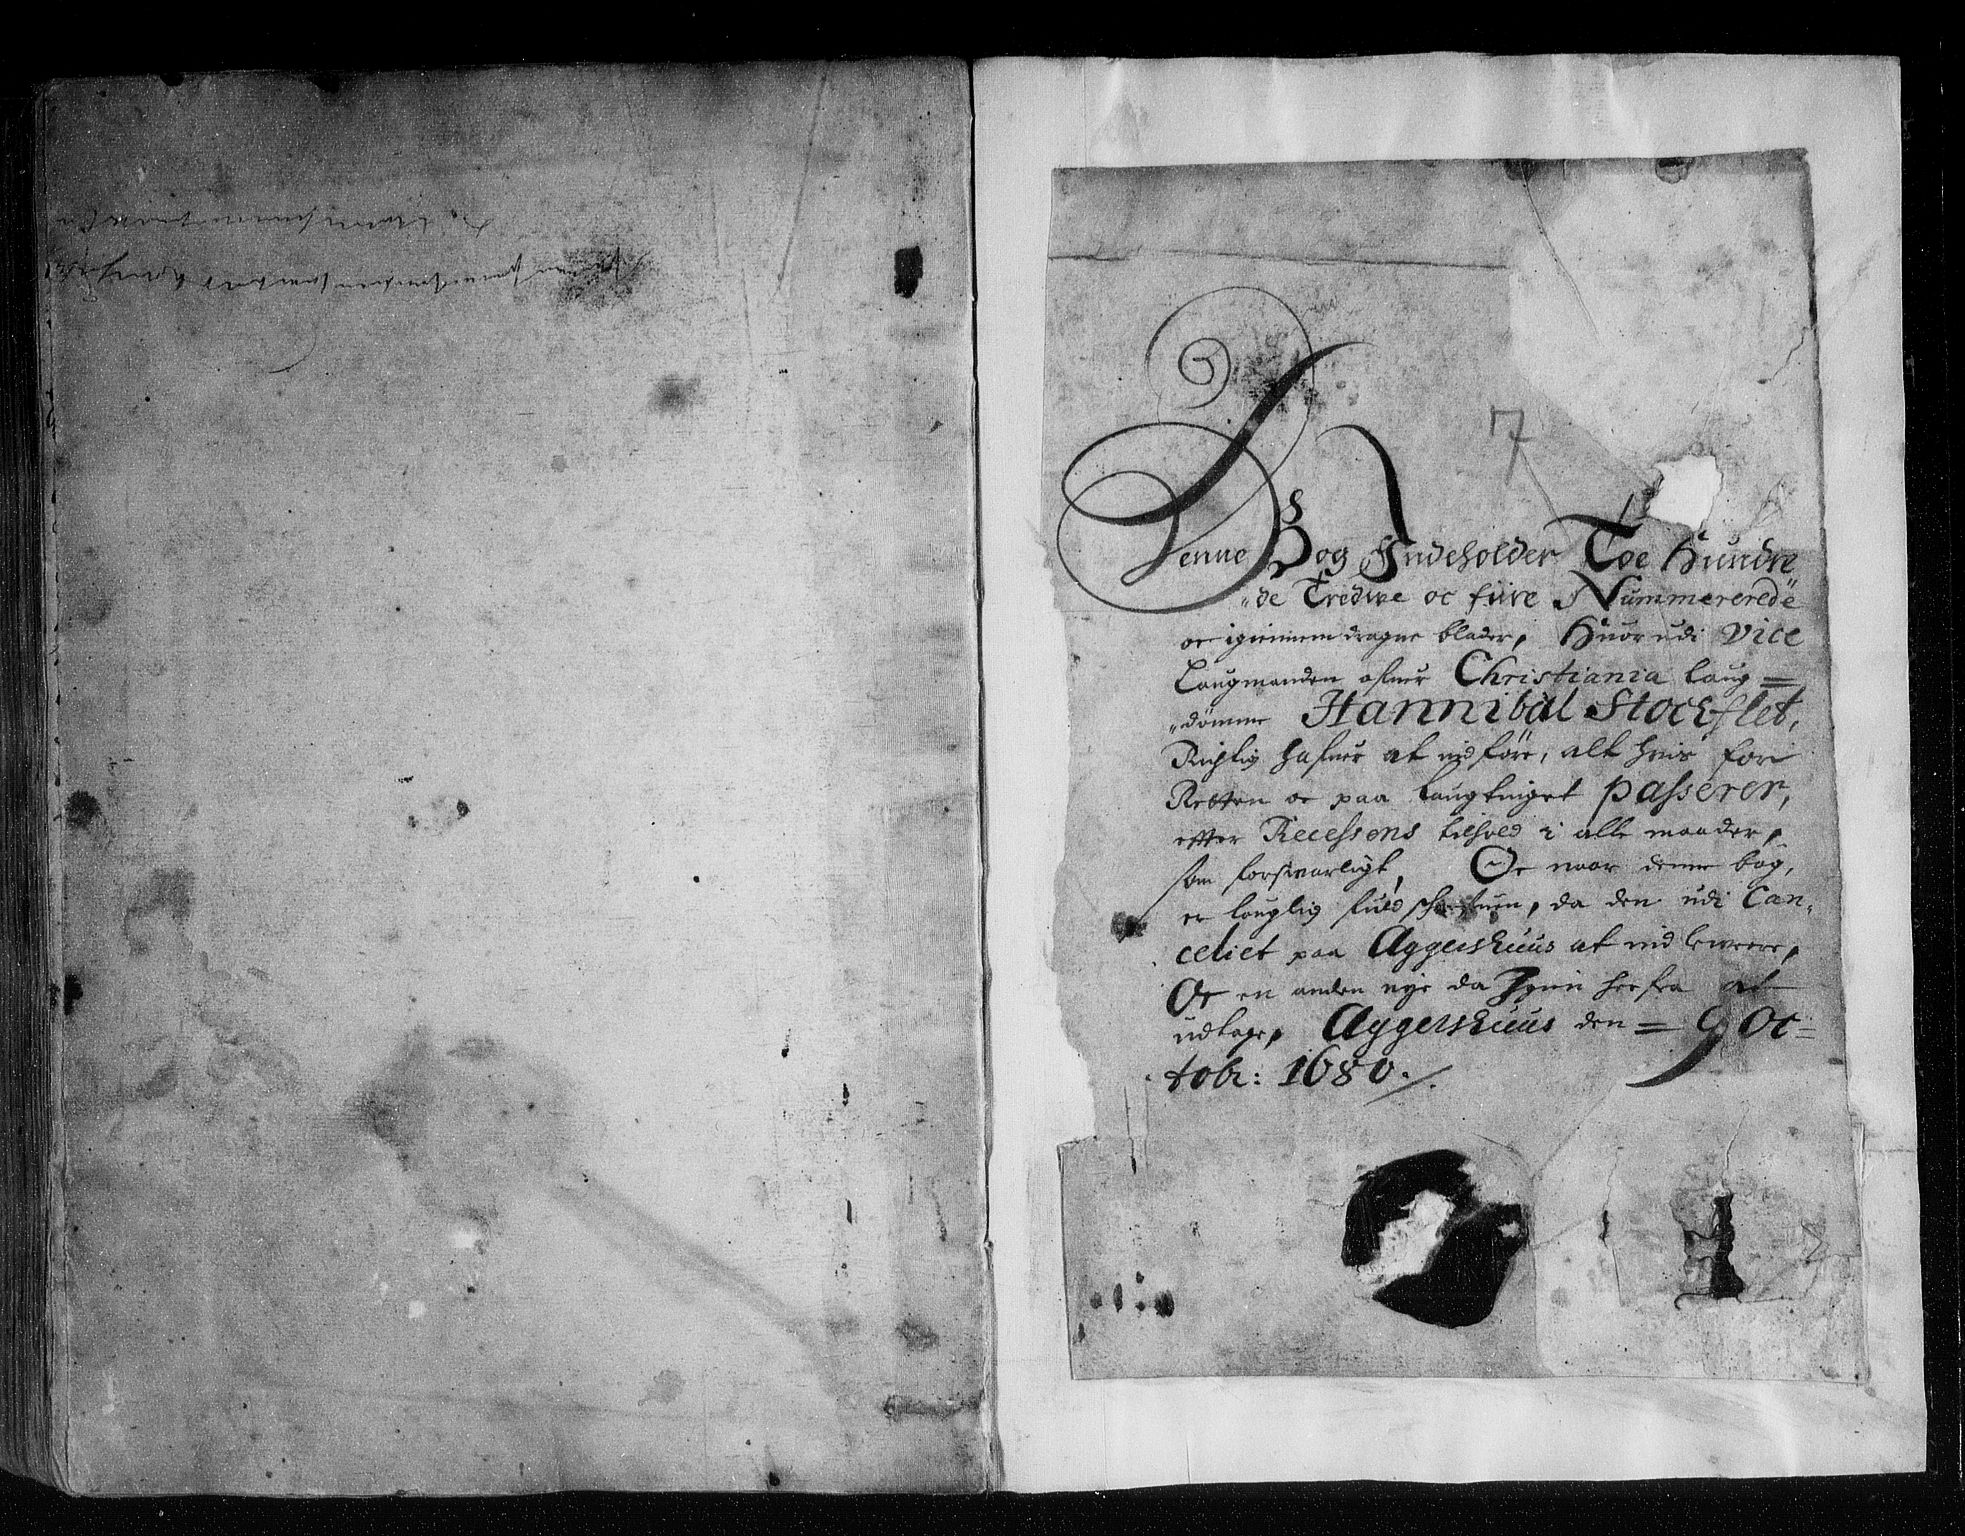 7
Denne Bog Indeholder Toe Hundre
"de Tredive oc fiire Nummererede
oc igiennemdragne blader, Huorudi Vice
Laugmanden ofuer Christiania laug=
"dömme Hannibal Stockflet,
Rigtig hafuer at indföre, alt hvis for
Retten oc paa laugtinget passerer,
effter Recessens tilhold i alle maader,
som forsvarligt, Oc naar denne bog,
er lauglig fuldschrefuen, da den udi Can-
celiet paa Aggershuus at indlevere,
Oc en anden nye da Igien herfra at
udtage, Aggershuus den = 9 Oc=
tobr: 1680.